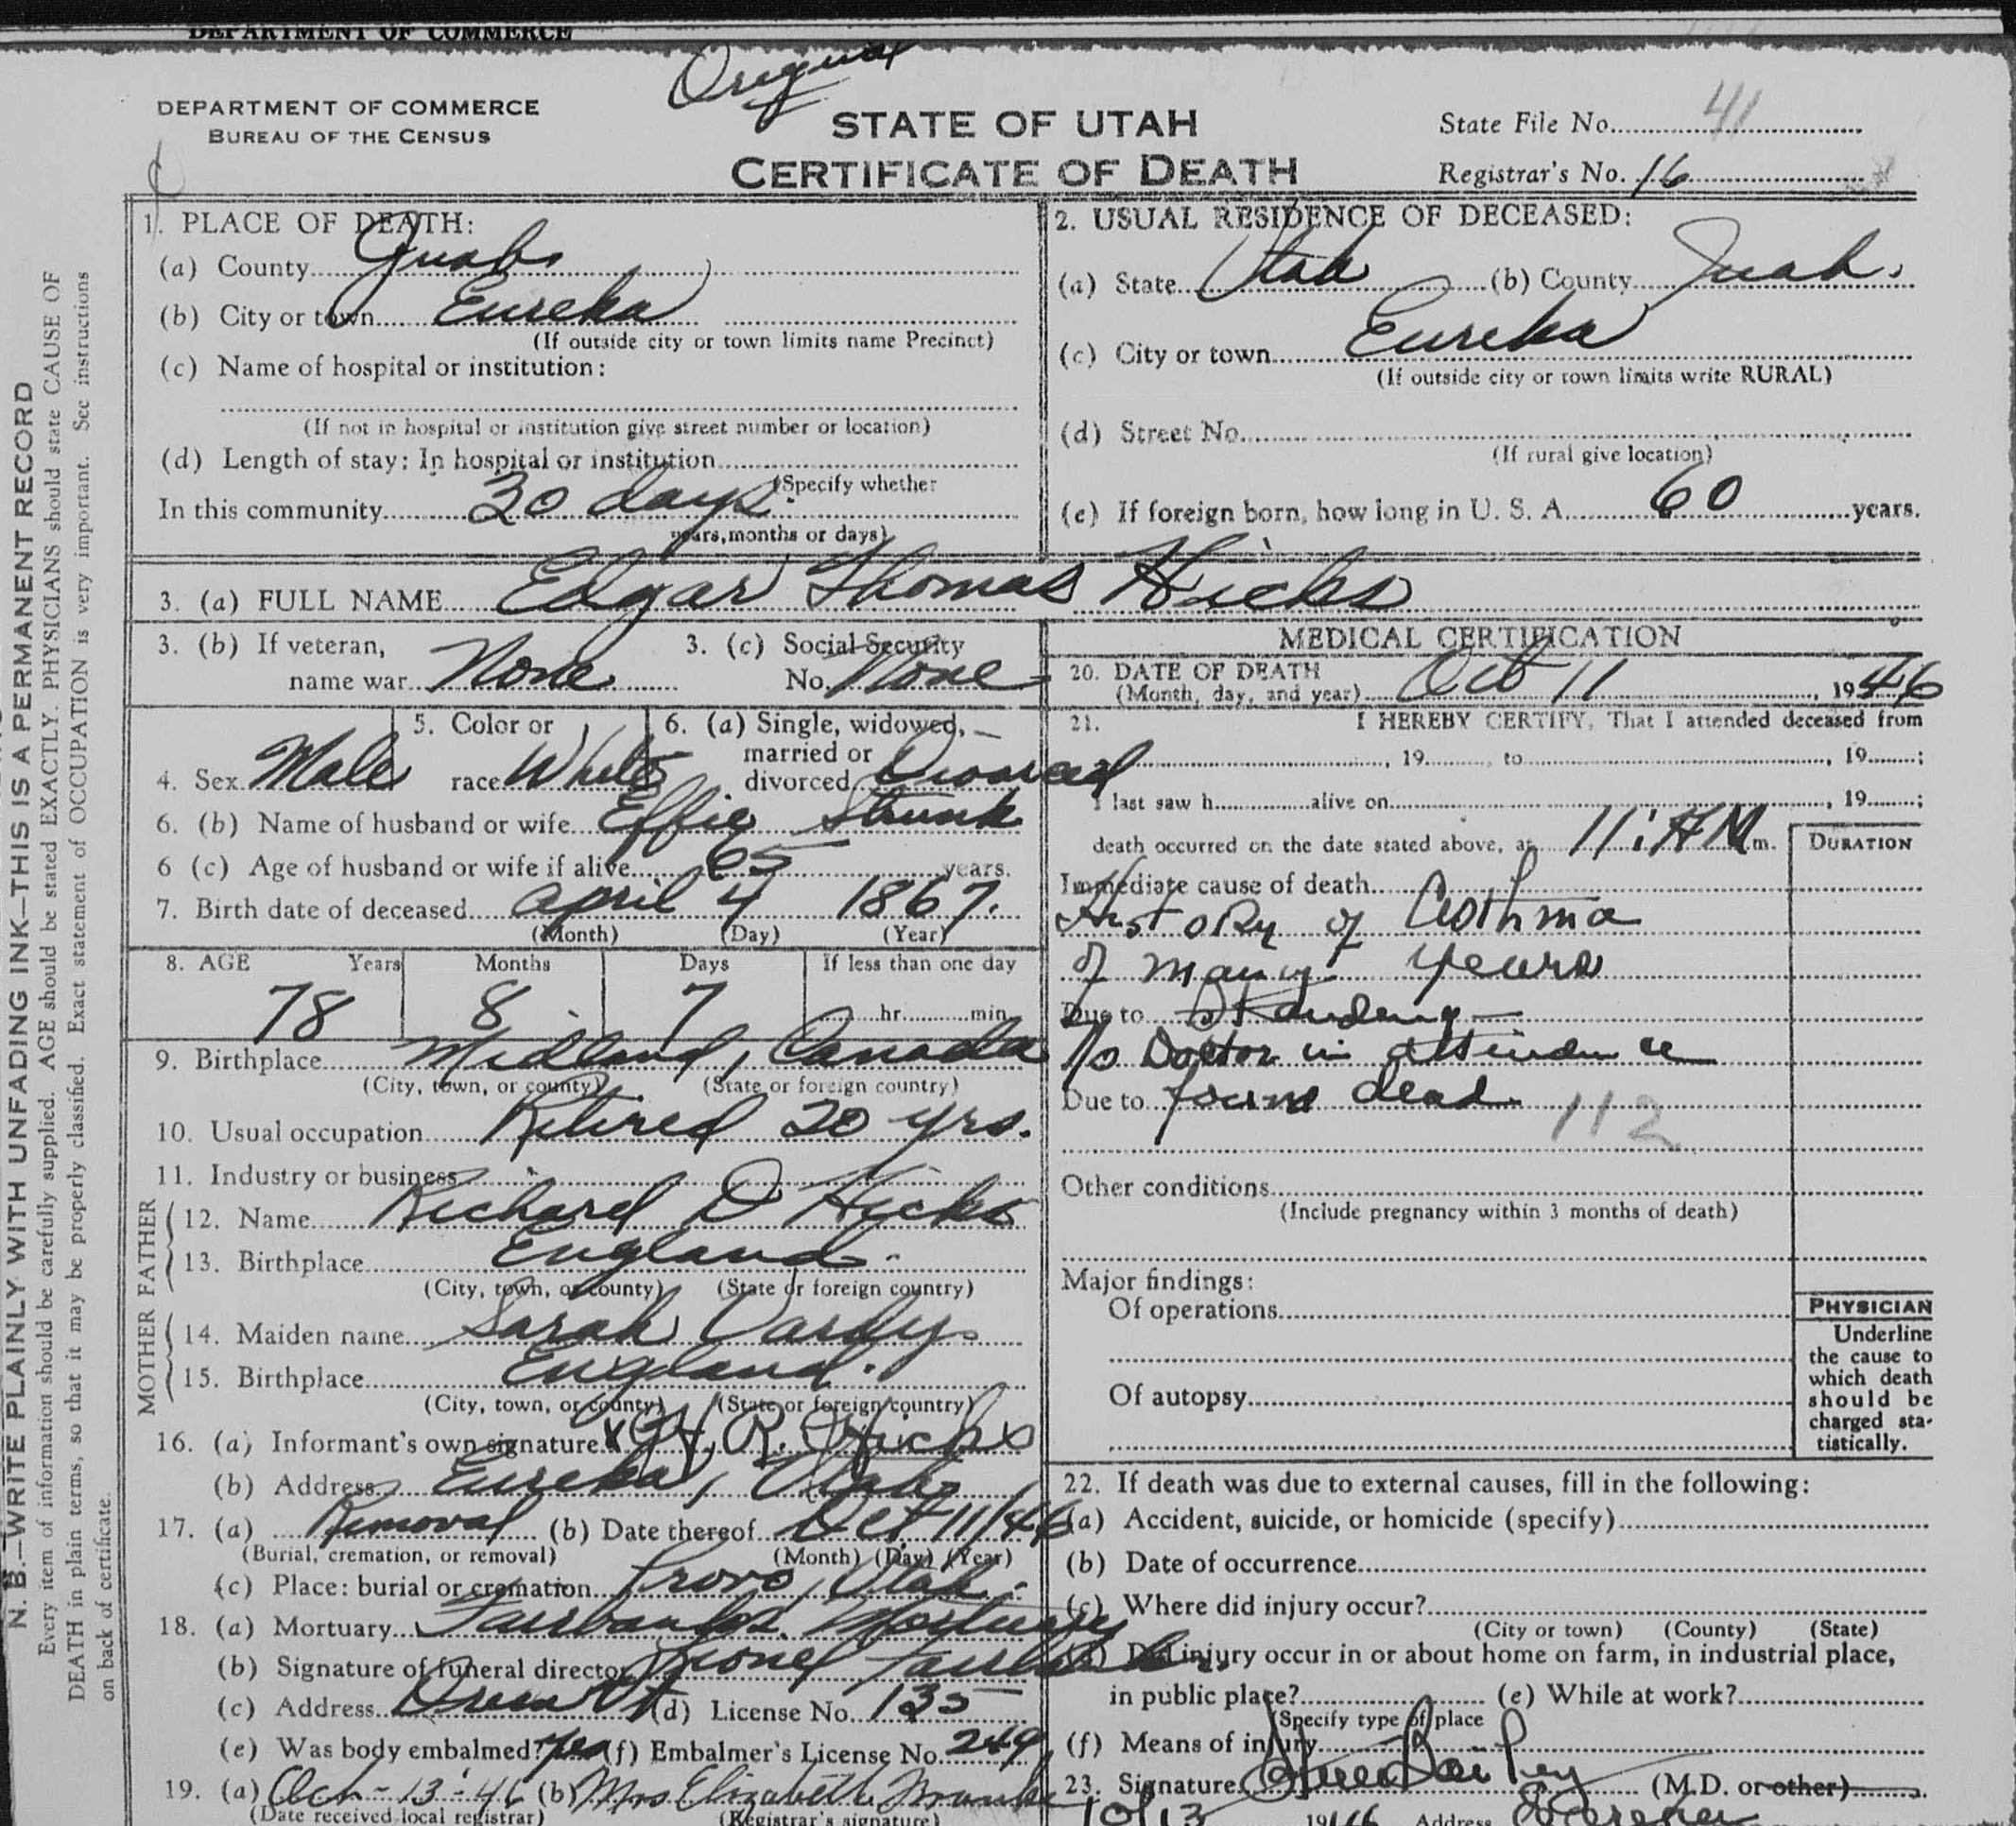 DEPARTMENT OF COMMERCE
Original
DEPARTMENT OF COMMERCE
BUREAU OF THE CENSUS
STATE OF UTAH
CERTIFICATE OF DEATH
State File No. 41
Registrar's No. 16
N. B.—WRITE PLAINLY WITH UNFADING INK—THIS IS A PERMANENT RECORD
Every item of information should be carefully supplied. AGE should be stated EXACTLY. PHYSICIANS should state CAUSE OF
DEATH in plain terms, so that it may be properly classified. Exact statement of OCCUPATION is very important. See instructions
on back of certificate.
1. PLACE OF DEATH:
(a) County Juab
(b) City or town Eureka
(If outside city or town limits name Precinct)
(c) Name of hospital or institution:
(If not in hospital or institution give street number or location)
(d) Length of stay: In hospital or institution
(Specify whether
In this community 30 days.
years, months or days)
2. USUAL RESIDENCE OF DECEASED:
(a) State Utah (b) County Juab.
(c) City or town Eureka
(If outside city or town limits write RURAL)
(d) Street No.
(If rural give location)
(e) If foreign born, how long in U. S. A. 60 years.
3. (a) FULL NAME Edgar Thomas Hicks
3. (b) If veteran, name war None
3. (c) Social Security No. None
4. Sex Male
5. Color or race White
6. (a) Single, widowed, married or divorced Divorced
6. (b) Name of husband or wife Effie Strunk
6 (c) Age of husband or wife if alive 65 years.
7. Birth date of deceased April 4 1867.
(Month) (Day) (Year)
8. AGE Years Months Days If less than one day
78 8 7 hr. min.
9. Birthplace Midland, Canada
(City, town, or county) (State or foreign country)
10. Usual occupation Retired 20 yrs.
11. Industry or business
FATHER
12. Name Richard D Hicks
13. Birthplace England.
(City, town, or county) (State or foreign country)
MOTHER
14. Maiden name Sarah Vardy
15. Birthplace England.
(City, town, or county) (State or foreign country)
16. (a) Informant's own signature x R. Hicks
(b) Address Eureka, Utah
17. (a) Removal (b) Date thereof Oct 11/46
(Burial, cremation, or removal) (Month) (Day) (Year)
(c) Place: burial or cremation Provo, Utah.
18. (a) Mortuary Fairbanks Mortuary
(b) Signature of funeral director Lionel Fairbanks
(c) Address (d) License No. 135
(e) Was body embalmed? Yes (f) Embalmer's License No. 249
19. (a) Oct-13-46 (b) Mrs Elizabeth
(Date received local registrar) (Registrar's signature)
MEDICAL CERTIFICATION
20. DATE OF DEATH
(Month, day, and year) Oct 11, 1946
21. I HEREBY CERTIFY, That I attended deceased from
, 19 to , 19 ;
I last saw h alive on , 19 ;
death occurred on the date stated above, at 11: AM m.
DURATION
Immediate cause of death
History of Asthma
of many years
Due to Standing
No Doctor in attendance
Due to found dead 112
Other conditions
(Include pregnancy within 3 months of death)
Major findings:
Of operations
Of autopsy
PHYSICIAN
Underline
the cause to
which death
should be
charged sta-
tistically.
22. If death was due to external causes, fill in the following:
(a) Accident, suicide, or homicide (specify)
(b) Date of occurrence
(c) Where did injury occur?
(City or town) (County) (State)
(d) Did injury occur in or about home on farm, in industrial place,
in public place? (e) While at work?
(Specify type of place
(f) Means of injury
23. Signature Bailey (M.D. or other)
10/13 1946 Address Eureka